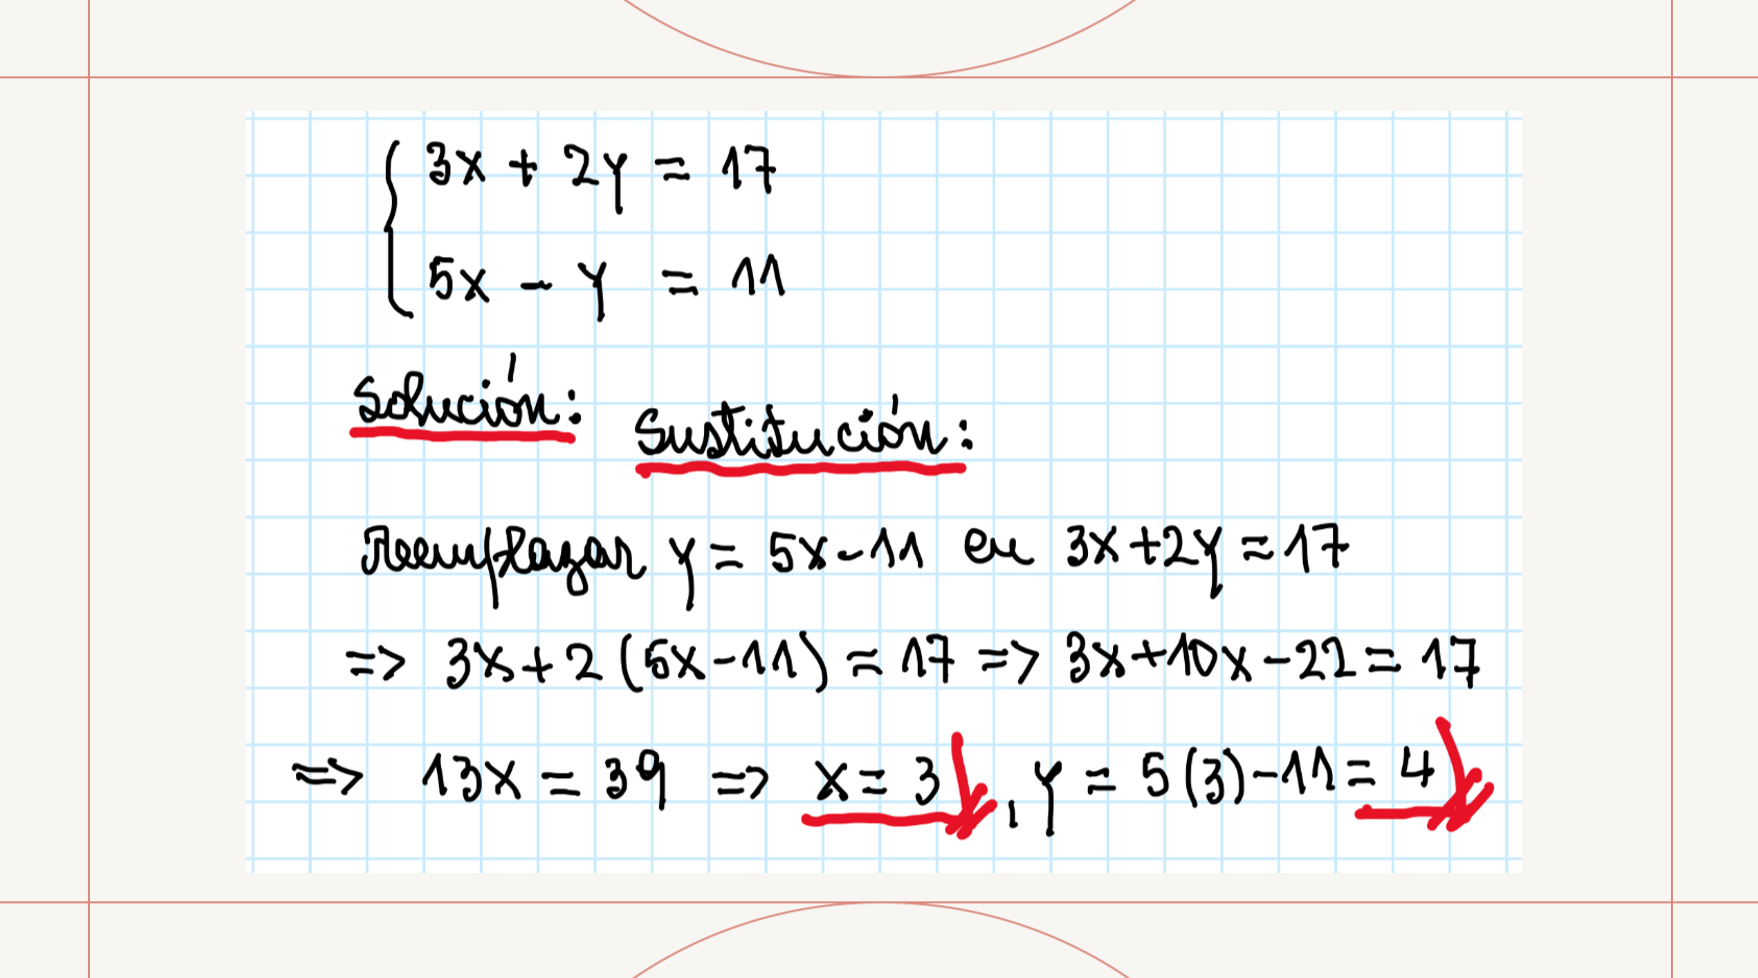 3x + 2y = 17
5x - y = 11
Solución:
Sustitución:
Reemplazar y = 5x-11 en 3x+2y=17
=> 3x+2(5x-11) = 17 => 3x+10x-22 = 17
=> 13x = 39 => x = 3, y = 5(3)-11 = 4